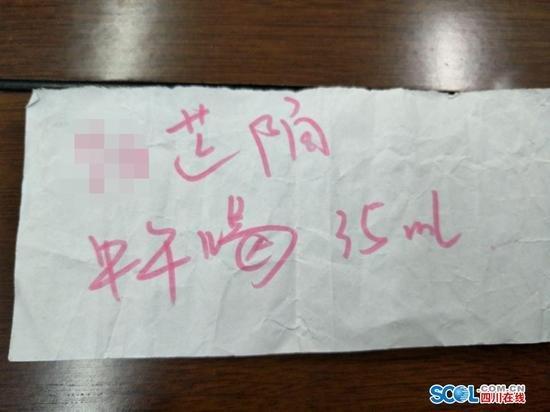 中午喝 35ml
SCOL.COM.CN
四川在线